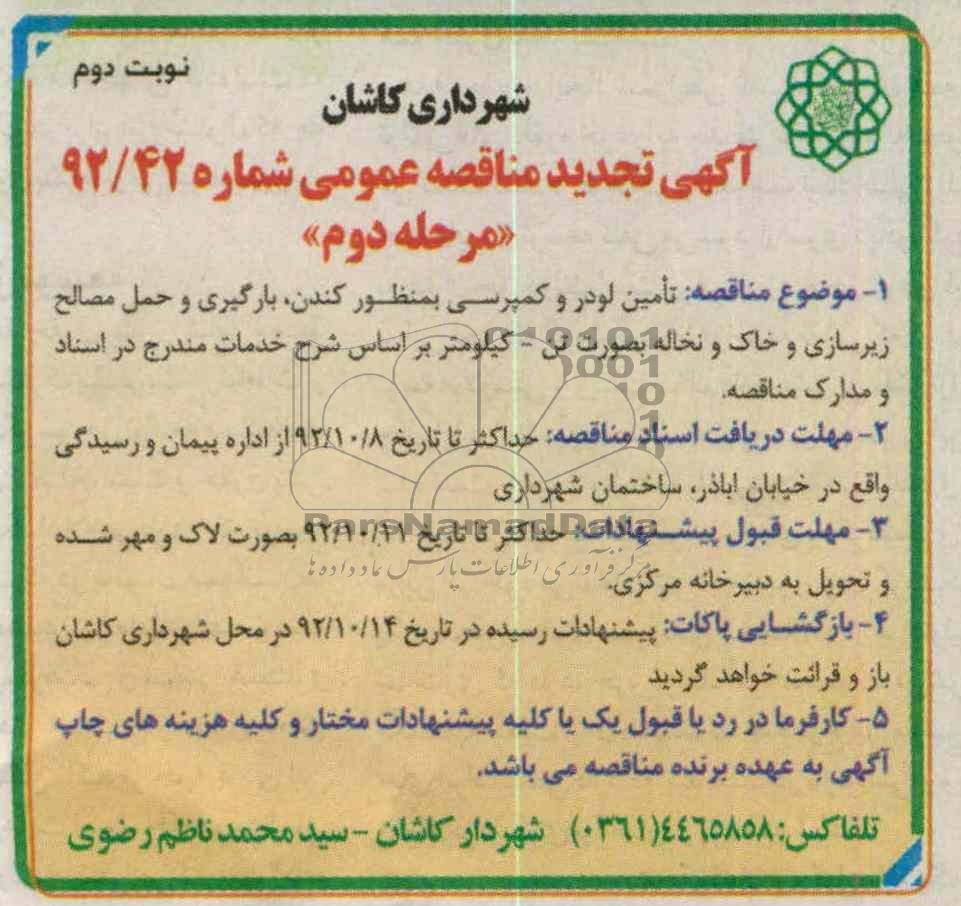 نوبت دوم
شهرداری کاشان
آگهی تجدید مناقصه عمومی شماره ۹۲/۴۲
«مرحله دوم»
۱- موضوع مناقصه: تأمین لودر و کمپرسی بمنظور کندن، بارگیری و حمل مصالح
زیرسازی و خاک و نخاله بصورت تن - کیلومتر بر اساس شرح خدمات مندرج در اسناد
و مدارک مناقصه.
۲- مهلت دریافت اسناد مناقصه: حداکثر تا تاریخ ۹۲/۱۰/۸ از اداره پیمان و رسیدگی
واقع در خیابان اباذر، ساختمان شهرداری
۳- مهلت قبول پیشنهادات: حداکثر تا تاریخ ۹۲/۱۰/۱۱ بصورت لاک و مهر شده
و تحویل به دبیرخانه مرکزی.
۴- بازگشایی پاکات: پیشنهادات رسیده در تاریخ ۹۲/۱۰/۱۴ در محل شهرداری کاشان
باز و قرائت خواهد گردید
۵- کارفرما در رد یا قبول یک یا کلیه پیشنهادات مختار و کلیه هزینه های چاپ
آگهی به عهده برنده مناقصه می باشد.
تلفاکس: ٤٤٦٥٨٥٨(۰۳٦۱) شهردار کاشان - سید محمد ناظم رضوی
ParsNamadData
مرکز فرآوری اطلاعات پارس نماد داده ها